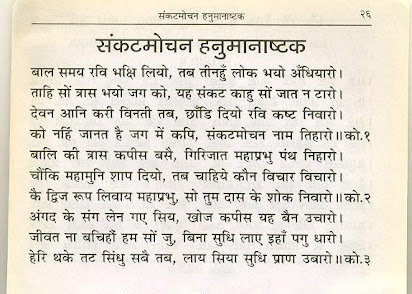 संकटमोचन हनुमानाष्टक २६
संकटमोचन हनुमानाष्टक
बाल समय रवि भक्षि लियो, तब तीनहुँ लोक भयो अँधियारो।
ताहि सों त्रास भयो जग को, यह संकट काहु सों जात न टारो।
देवन आनि करी विनती तब, छाँड़ि दियो रवि कष्ट निवारो।
को नहिं जानत है जग में कपि, संकटमोचन नाम तिहारो॥को.१
बालि की त्रास कपीस बसै, गिरिजात महाप्रभु पंथ निहारो।
चौंकि महामुनि शाप दियो, तब चाहिये कौन विचार विचारो।
कै द्विज रूप लिवाय महाप्रभु, सो तुम दास के शोक निवारो॥को.२
अंगद के संग लेन गए सिय, खोज कपीस यह बैन उचारो।
जीवत ना बचिहौं हम सों जु, बिना सुधि लाए इहाँ पगु धारो।
हेरि थके तट सिंधु सबै तब, लाय सिया सुधि प्राण उबारो॥को.३